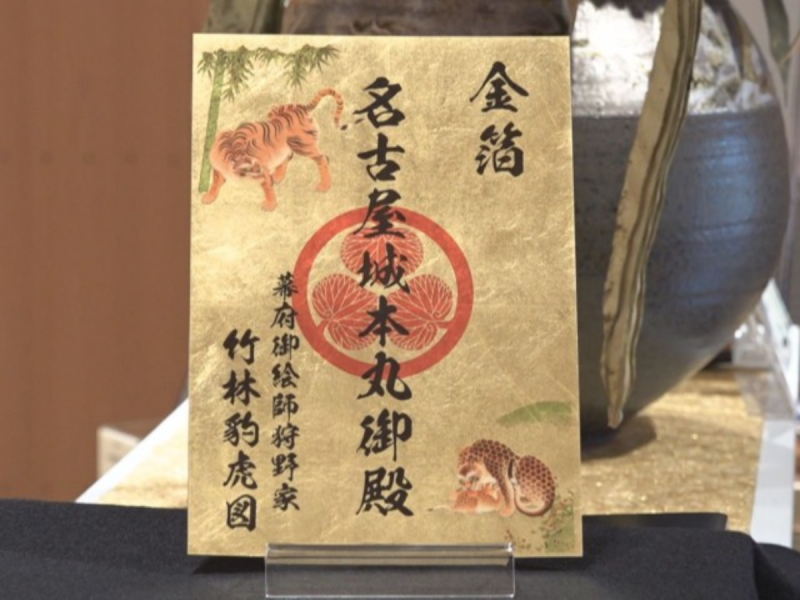 金箔
名古屋城本丸御殿
幕府御絵師狩野家
竹林豹虎図